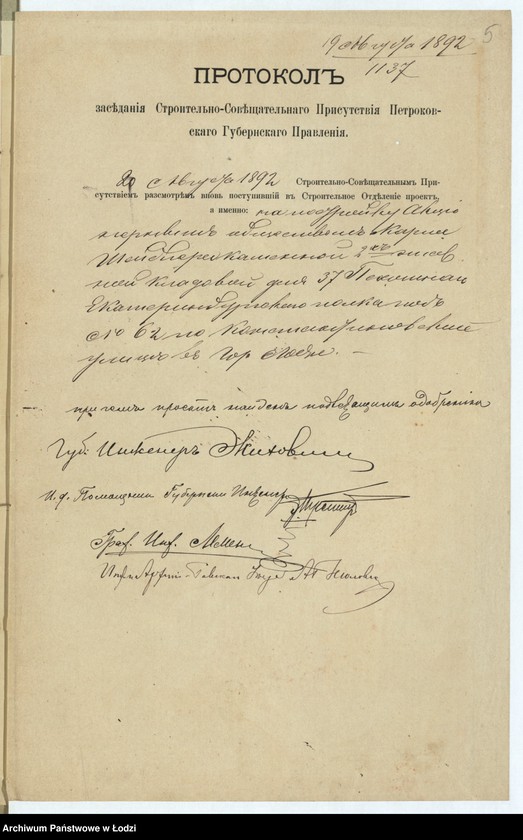 19 Августа 1892 5
1137
ПРОТОКОЛЪ
засѣданія Строительно-Совѣщательнаго Присутствія Петроков-
скаго Губернскаго Правленія.
20 Августа 1892 Строительно-Совѣщательнымъ При-
сутствіемъ разсмотрѣнъ вновь поступившій въ Строительное Отдѣленіе проектъ,
а именно: на постройку Акціо
нернымъ обществомъ Карла
Шейблера каменной 2хъ этаж
ной кладовой для 37 Пехотнаго
Екатеринбургскаго полка подъ
№ 62 по Константиновской
улицѣ въ гор. Лодзи. —
при чемъ проектъ найденъ подлежащимъ одобренію
Губ. Инженеръ
И. д. Помощника Губернскаго Инженера
Граж. Инж.